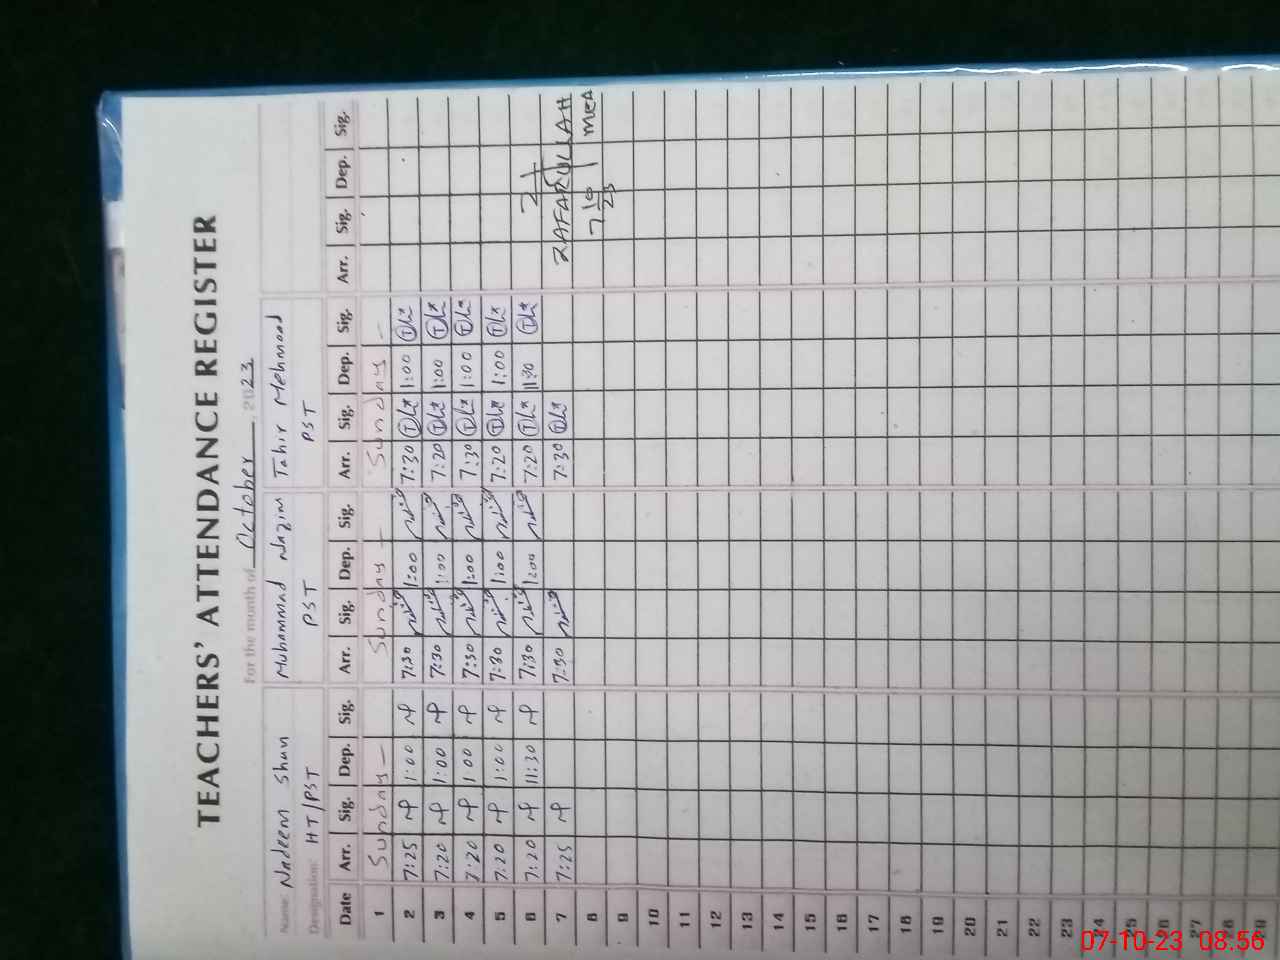 TEACHERS' ATTENDANCE REGISTER
For the month of October, 2023
Name: Nadeem Shun Muhammad Nazim Tahir Mehmood
Designation: HT/PST PST PST
Date Arr. Sig. Dep. Sig. Arr. Sig. Dep. Sig. Arr. Sig. Dep. Sig. Arr. Sig. Dep. Sig.
1 Sunday — Sunday — Sunday —
2 7:25 1:00 7:30 1:00 7:30 1:00
3 7:20 1:00 7:30 1:00 7:20 1:00
4 7:20 1:00 7:30 1:00 7:30 1:00
5 7:20 1:00 7:30 1:00 7:20 1:00
6 7:20 11:30 7:30 1:00 7:20 11:30
7 7:25 7:30 7:30 ZAFARULLAH
8 7/10/23 MEA
9
10
11
12
13
14
15
16
17
18
19
20
21
22
23
24
25
26
27
28
29
07-10-23 08:56